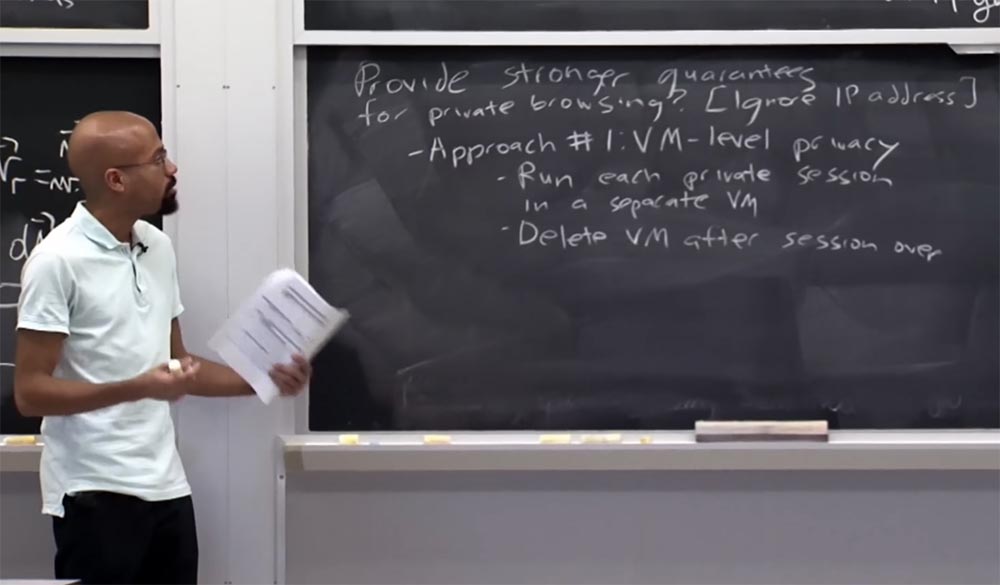 Provide stronger guarantees
for private browsing? [Ignore IP address]
- Approach #1: VM-level privacy
- Run each private session
in a separate VM
- Delete VM after session over